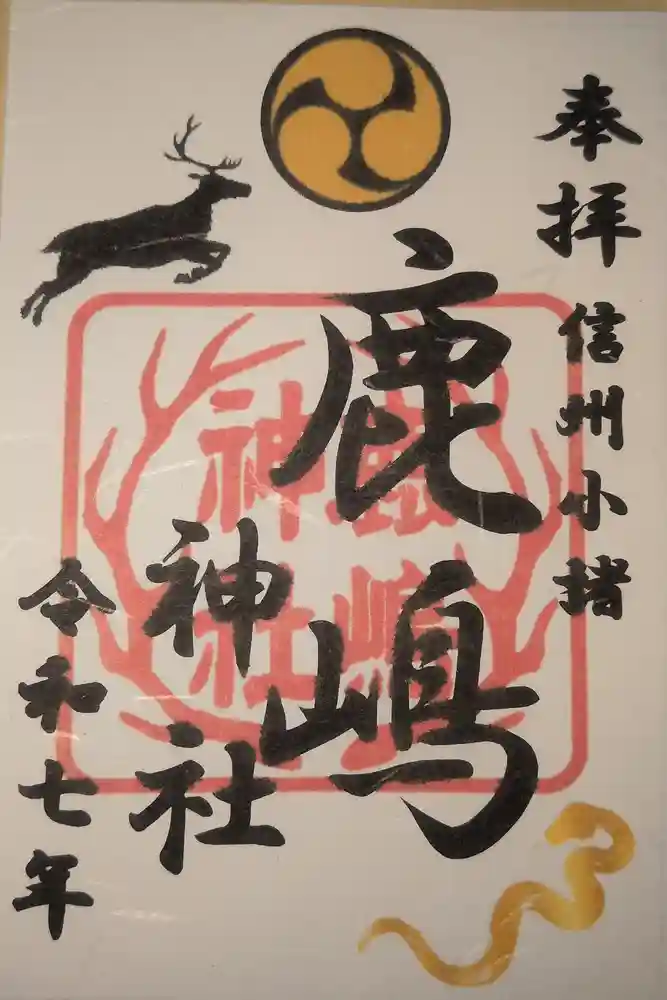 奉拝 信州小諸
鹿嶋
神社
令和七年
鹿嶋
神社